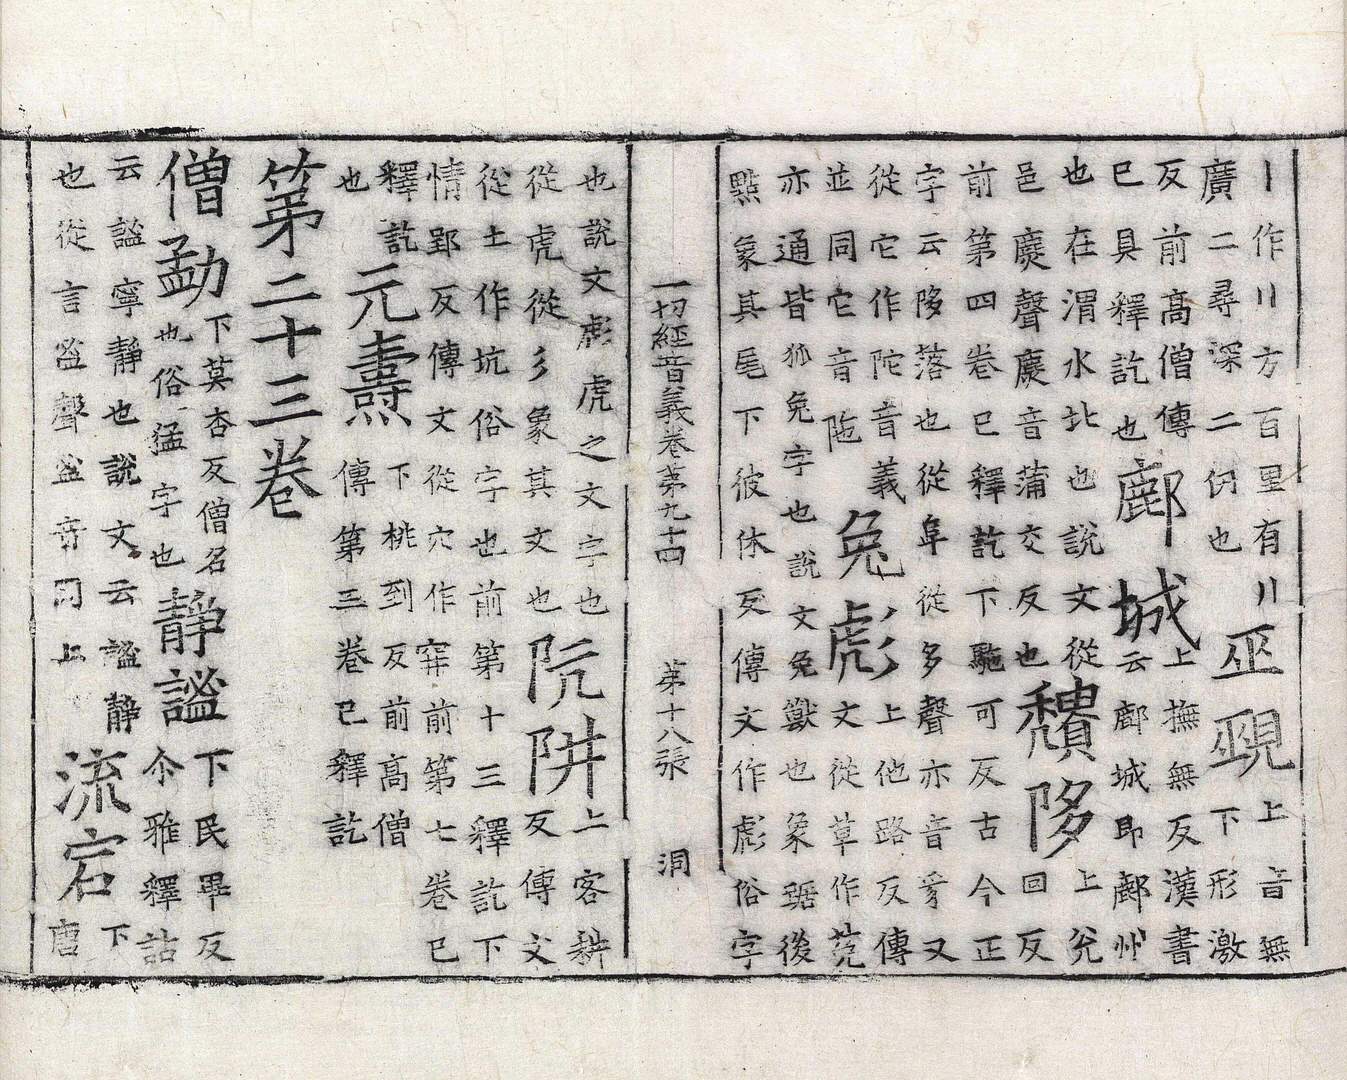 丨作〢方百里有〢巫覡上音無
廣二尋深二仞也下形激
反前高僧傳上撫無反漢書
巳具釋訖也鄜城云鄜城即鄜州
也在渭水北也說文從上兊
邑麃聲麃音蒲交反也穨陊回反
前第四卷巳釋訖下駞可反古今正
字云陊落也從阜從多聲亦音豸又
從它作陀音義上他路反傳
並同它音陁兔彪文從草作菟
亦通皆狐兔字也說文兔獸也象踞後
點象其尾下彼休反傳文作彪俗字
一切經音義卷第九十四 第十八張 洞
也說文彪虎之文字也上客耕
從虎從彡象其文也阬阱反傳文
從土作坑俗字也前第十三釋訖下
情郢反傳文從穴作穽前第七卷巳
釋訖元燾下桃到反前高僧
也傳第三卷巳釋訖
第二十三卷
僧勐下莫杏反僧名靜謐下民畢反
也俗猛字也尒雅釋詁
云謐寧靜也說文云謐靜流宕下
也從言䀄聲䀄音同上唐